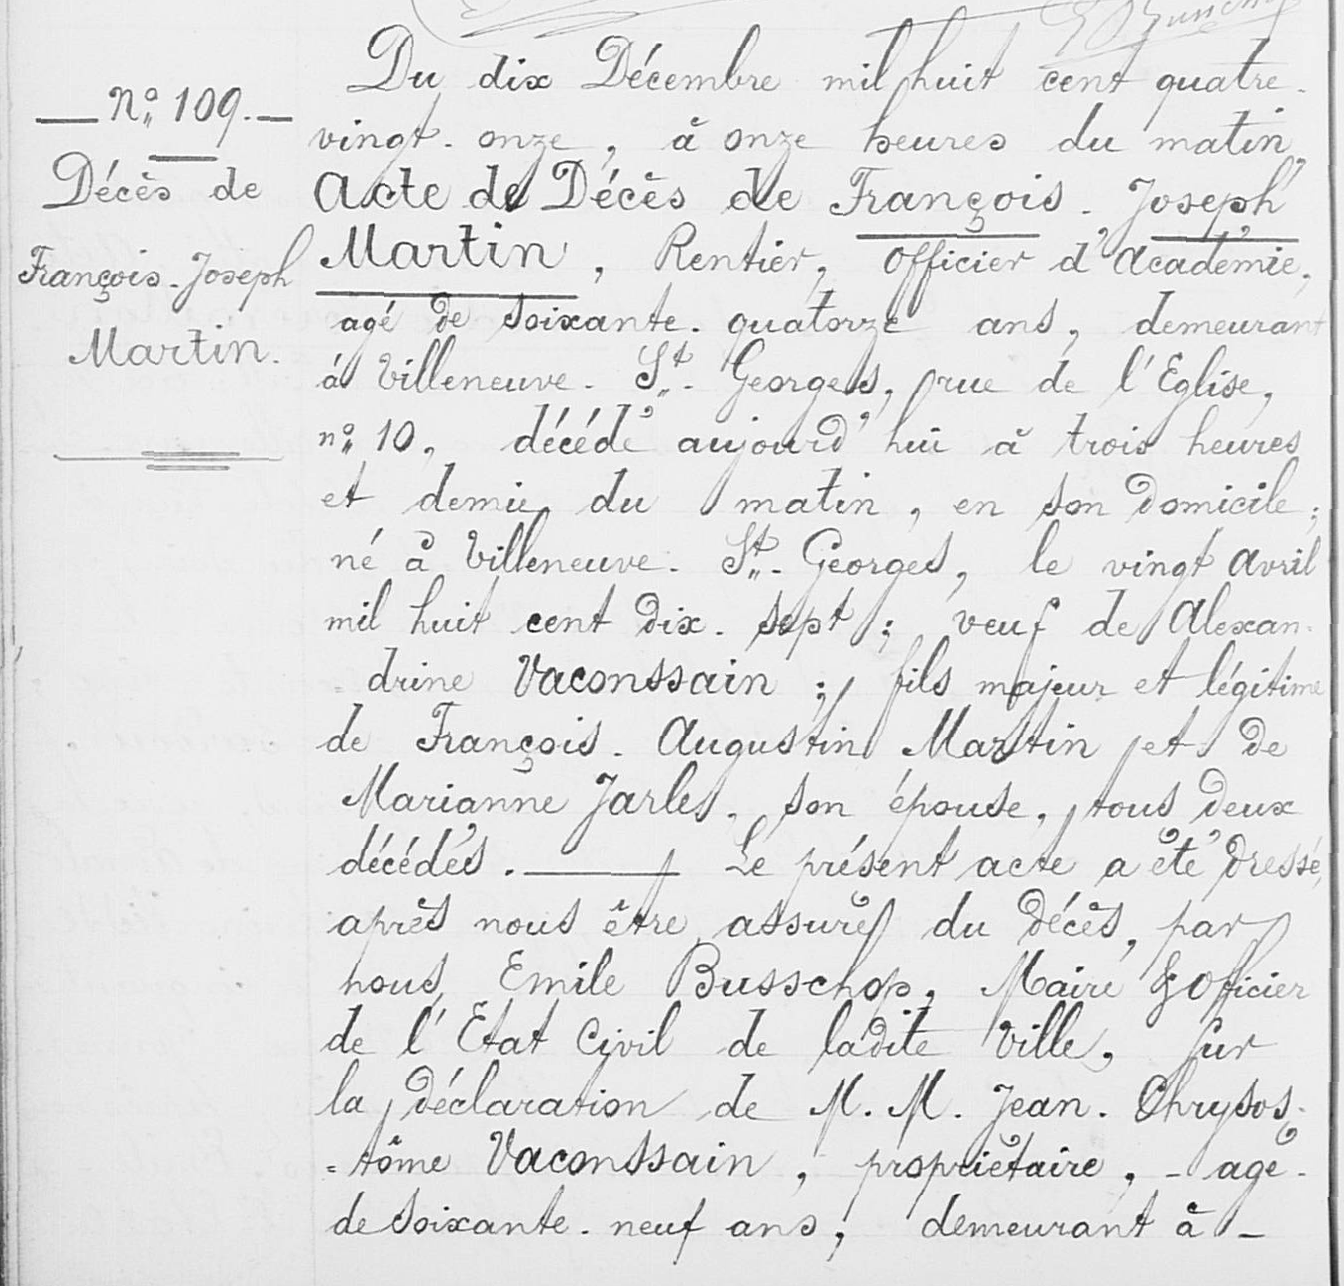 N° 109.
Décès de
François-Joseph
Martin.
Du dix Décembre mil huit cent quatre-
vingt-onze, à onze heures du matin,
Acte de Décès de François-Joseph
Martin, Rentier, officier d'Académie,
agé de soixante-quatorze ans, demeurant
à Villeneuve-St-Georges, rue de l'Eglise,
n° 10, décédé aujourd'hui à trois heures
et demie du matin, en son domicile;
né à Villeneuve-St-Georges, le vingt avril
mil huit cent dix-sept; veuf de Alexan-
drine Vaconssain; fils majeur et légitime
de François-Augustin Martin et de
Marianne Jarles, son épouse, tous deux
décédés. — Le présent acte a été dressé,
après nous être assuré du décès, par
nous Emile Busschop, Maire & Officier
de l'Etat Civil de ladite Ville, Sur
la déclaration de M.M. Jean-Chrysos-
=tôme Vaconssain, propriétaire, - agé -
de soixante-neuf ans, demeurant à -